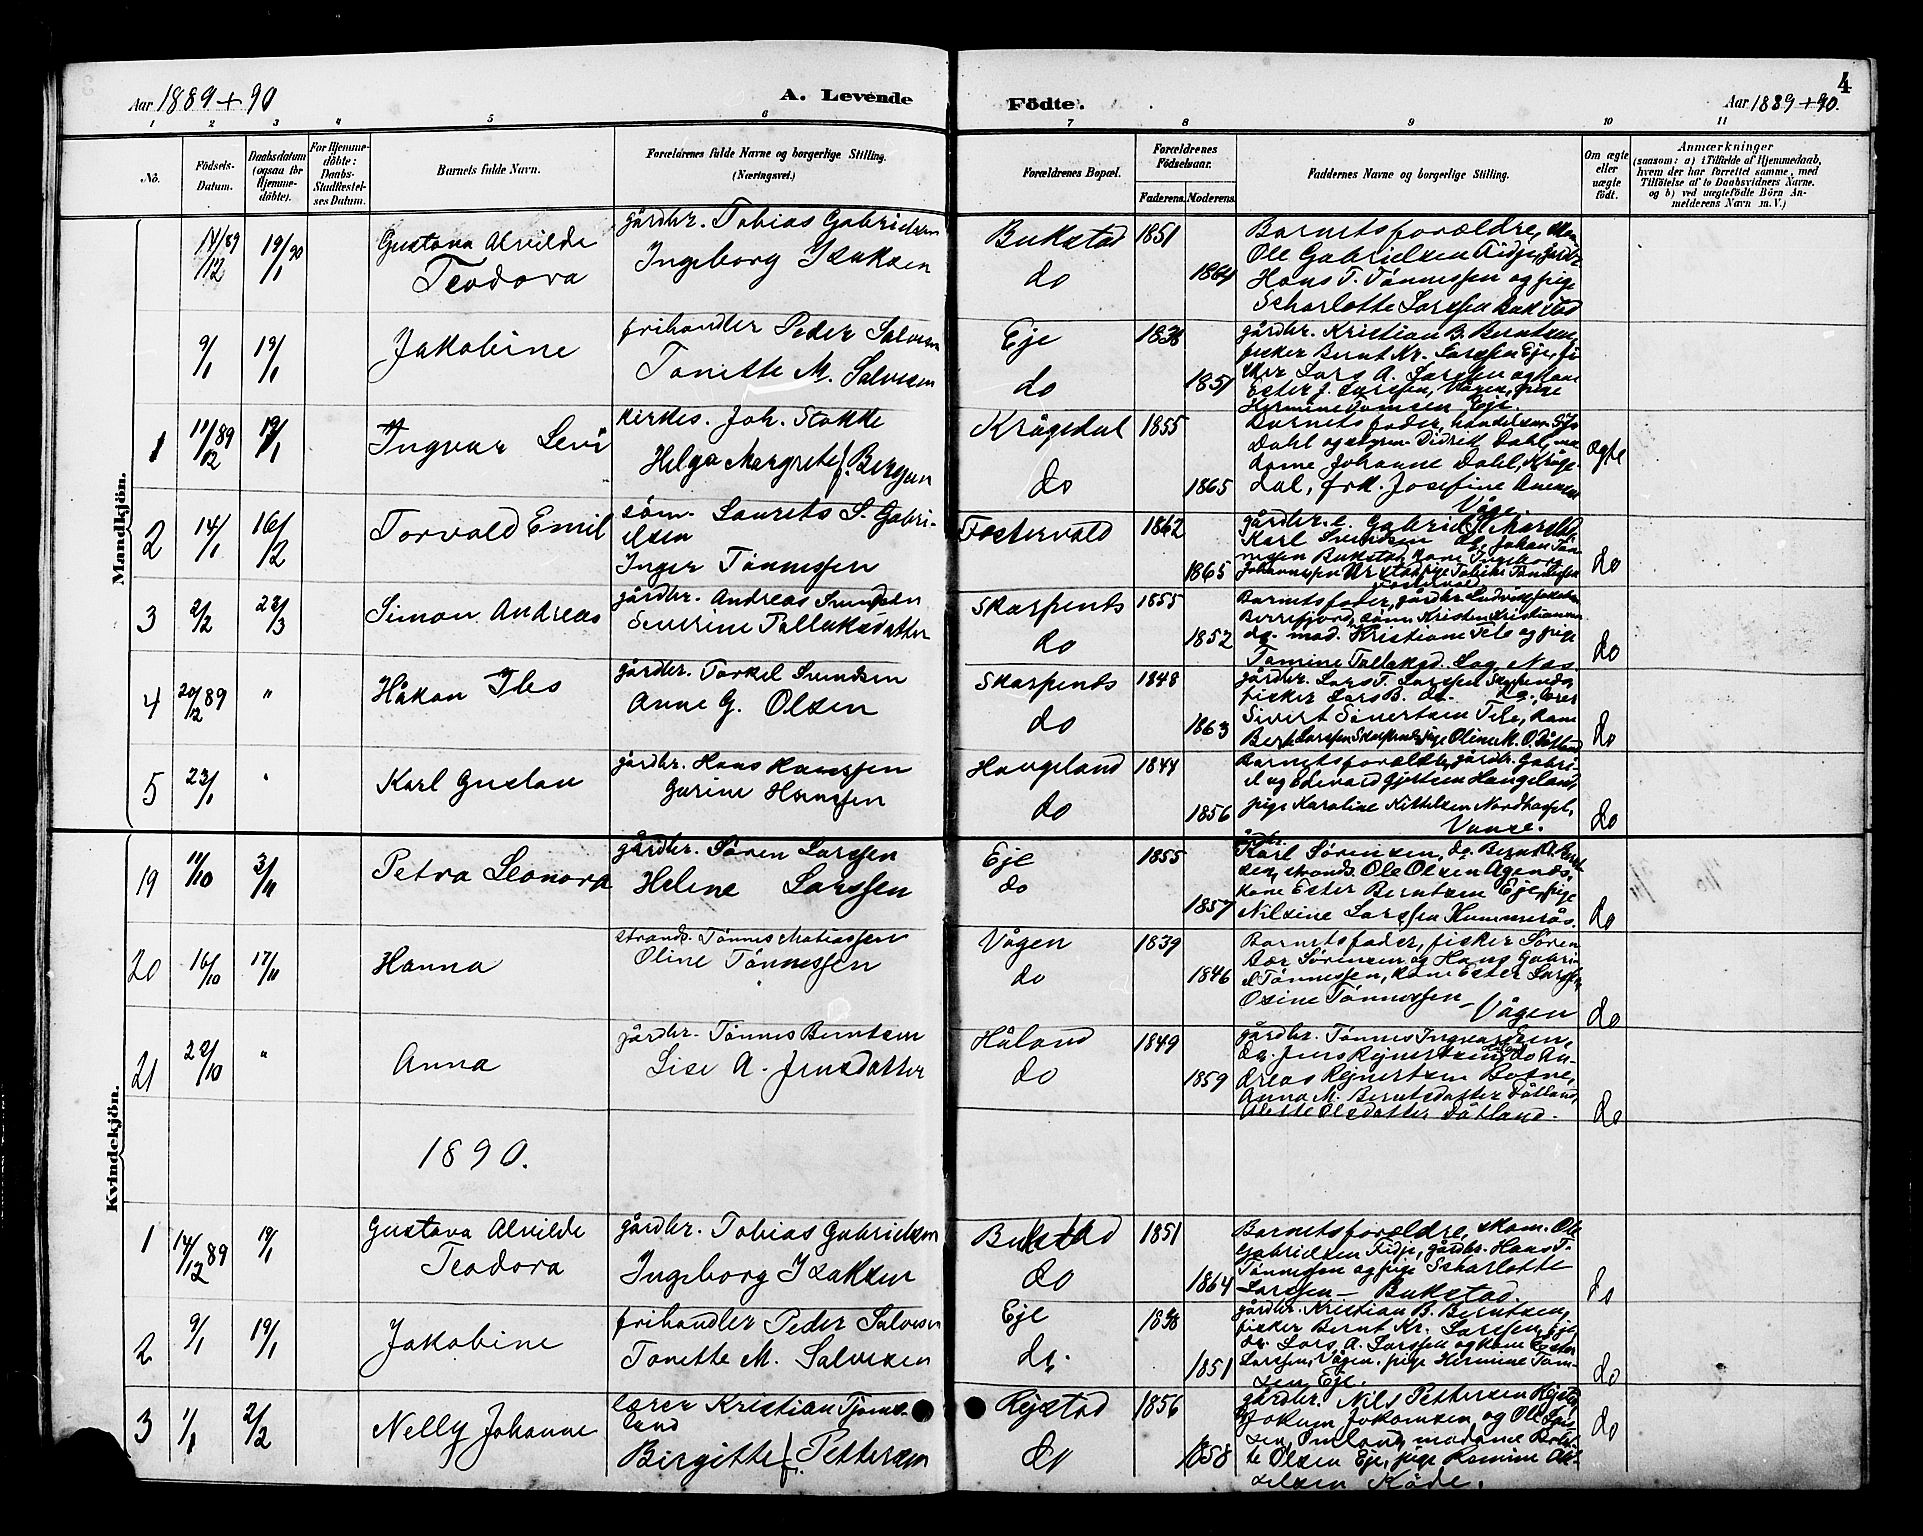 4
Aar 1889 + 90
A. Levende
Födte.
Aar 1889 + 90.
1 2 3 4 5 6 7 8 9 10 11
No.
Födsels-Datum.
Daabsdatum (ogsaa for Hjemme-döbte).
For Hjemme-döbte: Daabs-Stadfæstel-ses Datum.
Barnets fulde Navn.
Forældrenes fulde Navne og borgerlige Stilling. (Næringsvei.)
Forældrenes Bopæl.
Forældrenes Födselsaar.
Faderens. Moderens.
Faddernes Navne og borgerlige Stilling.
Om ægte eller uægte födt.
Anmærkninger
(saasom: a) i Tilfælde af Hjemmedaab, hvem der har forrettet samme, med Tilföielse af to Daabsvidners Navne. og b) ved uægtefödte Börn An-melderens Navn m.V.)
Mandkjön.
14/12 89 19/1 90 Gustava Alvilde Teodora
gårdbr. Tobias Gabrielsen
Ingeborg Isaksen
Bukstad 1851
do 1864
Barnets forældre,
Ole Gabrielsen Fidje, gårdbr.
Hans T. Tönnessen og pige
Scharlotte Larssen Bukstad
9/1 19/1 Jakobine
frihandler Peder Salvesen
Tonette M. Salvesen
Eje 1838
do 1851
gårdbr. Kristian B. Berntsen,
fisker Bernt Kr. Larssen Eje, fi-
sker Lars A. Larssen og kone
Ester J. Larssen, Vågen, pige
Hermine Tomsen, Eje.
1 11/12 89 19/1 Ingvar Levi
kirkes. Joh. Stokke
Helga Margrete f. Bergjen
Krågedal 1855
do 1865
Barnets fader, handelsm.
Dahl og Didrik Dahl, ma-
dame Johanne Dahl, Kråge-
dal, frk. Josefine
Våge.
ægte
2 14/1 16/2 Torvald Emil
söm. Laurits S. Gabri-
elsen
Inger Tönnessen
Fostervold 1862
1865
gårdbr. Gabriel
Karl Svendsen Johan Tön-
nesen Bukstad, kone Ingeborg
do
3 2/2 23/3 Simon Andreas
gårdbr. Andreas Svendsen
Severine Tallaksdatter
Skarpenes 1855
do 1852
Barnets fader, gårdbr. Ludvig
söm. Kristen Kristiansen
do. mad. Kristiane Tele og pige
Tomine Tallaksd. Log, Næs
do
4 20/12 89 " Håkon Iles
gårdbr. Torkel Svendsen
Anne G. Olsen
Skarpenes 1848
do 1863
gårdbr. Lars T. Larssen Skarpenes,
fisker Lars B. do. do., lærer
Sivert Sivertsen Tele, kone
Larssen Skarpenes, pige Oline M. O. Dåtland
do
5 23/1 " Karl Gustav
gårdbr. Hans Hanssen
Gurine Hanssen
Haugeland 1844
do 1856
Barnets forældre, gårdbr. Gabri-
el og Edevard Gjertsen Haugeland,
pige Karoline Kittelsen Nordhassel,
Vanse.
do
Kvindekjön.
19 11/10 3/11 Petra Leonora
gårdbr. Sören Larssen
Helene Larssen
Eje 1855
do 1857
gårdbr.
Karl Sörensen, do. Bernt A. Bernt-
sen, strands. Ole Olsen Agends,
kone Ester Berntsen Eje, pige
Nilsine Larssen Hummerås.
do
20 16/10 17/11 Hanna
strands. Tönnes Matiassen
Oline Tönnessen
Vågen 1839
do 1846
Barnets fader, fisker Sören
Sörensen og Hans Gabri-
el Tönnessen, kone Ester Larssen,
Osine Tönnessen -
Vågen
do
21 22/10 " Anna
gårdbr. Tönnes Berntsen
Lise A. Jensdatter
Håland 1849
do 1859
gårdbr. Tönnes Ingvaldsen,
do. Jens Rejnertsen Håland, do An-
dreas Rejnertsen Botne,
Anna M. Berntsdatter Dåtland,
Alette Olsdatter Dåtland.
do
1890.
1 14/12 89 19/1 Gustava Alvilde Teodora
gårdbr. Tobias Gabrielsen
Ingeborg Isaksen
Bukstad 1851
do 1864
Barnets forældre, skom. Ole
Gabrielsen Fidje, gårdbr. Hans T.
Tönnessen og pige Scharlotte
Larssen - Bukstad.
do
2 9/1 19/1 Jakobine
frihandler Peder Salvesen
Tonette M. Salvesen
Eje 1838
do. 1851
gårdbr. Kristian B. Berntsen,
fisker Bernt Kr. Larssen, Eje,
do. Lars A. Larssen og kone Ester
Larssen, Vågen, pige Hermine Tom-
sen, Eje.
do
3 1/1 2/2 Nelly Johanne
lærer Kristian Tjoms-
land
Birgitte f. Pettersen
Rejstad 1856
do 1858
gårdbr. Nils Pettersen Rejstad,
Jokum Jokumsen, og Ole
sen, Omland, madame
te Olsen Eje, pige Romine Ak-
selsen Kåde.
do